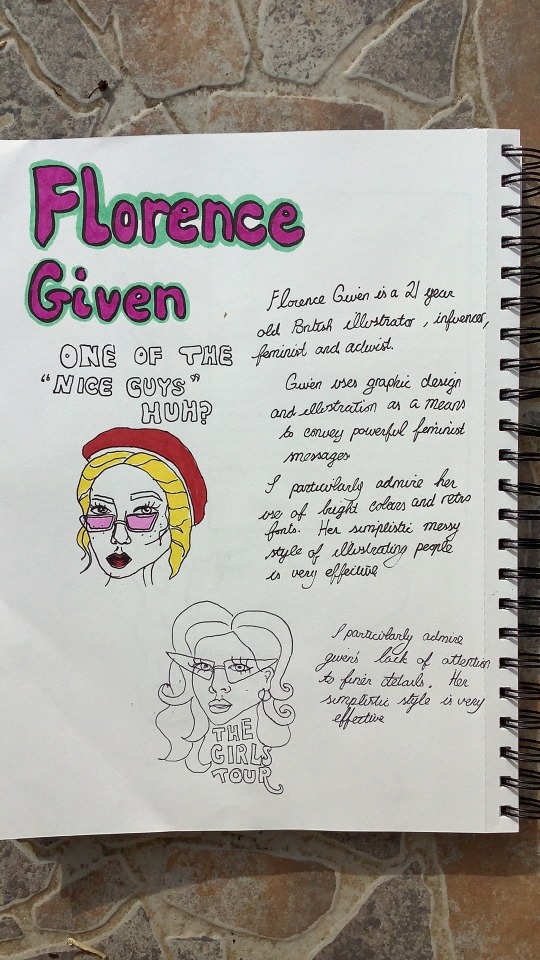 Florence
Given
ONE OF THE
"NICE GUYS"
HUH?
Florence Given is a 21 year
old British illustrator, influencer,
feminist and activist.
Given uses graphic design
and illustration as a means
to convey powerful feminist
messages
I particularly admire her
use of bright colours and retro
fonts. Her simplistic messy
style of illustrating people
is very effective
I particularly admire
given's lack of attention
to finer details. Her
simplistic style is very
effective
THE
GIRLS
TOUR